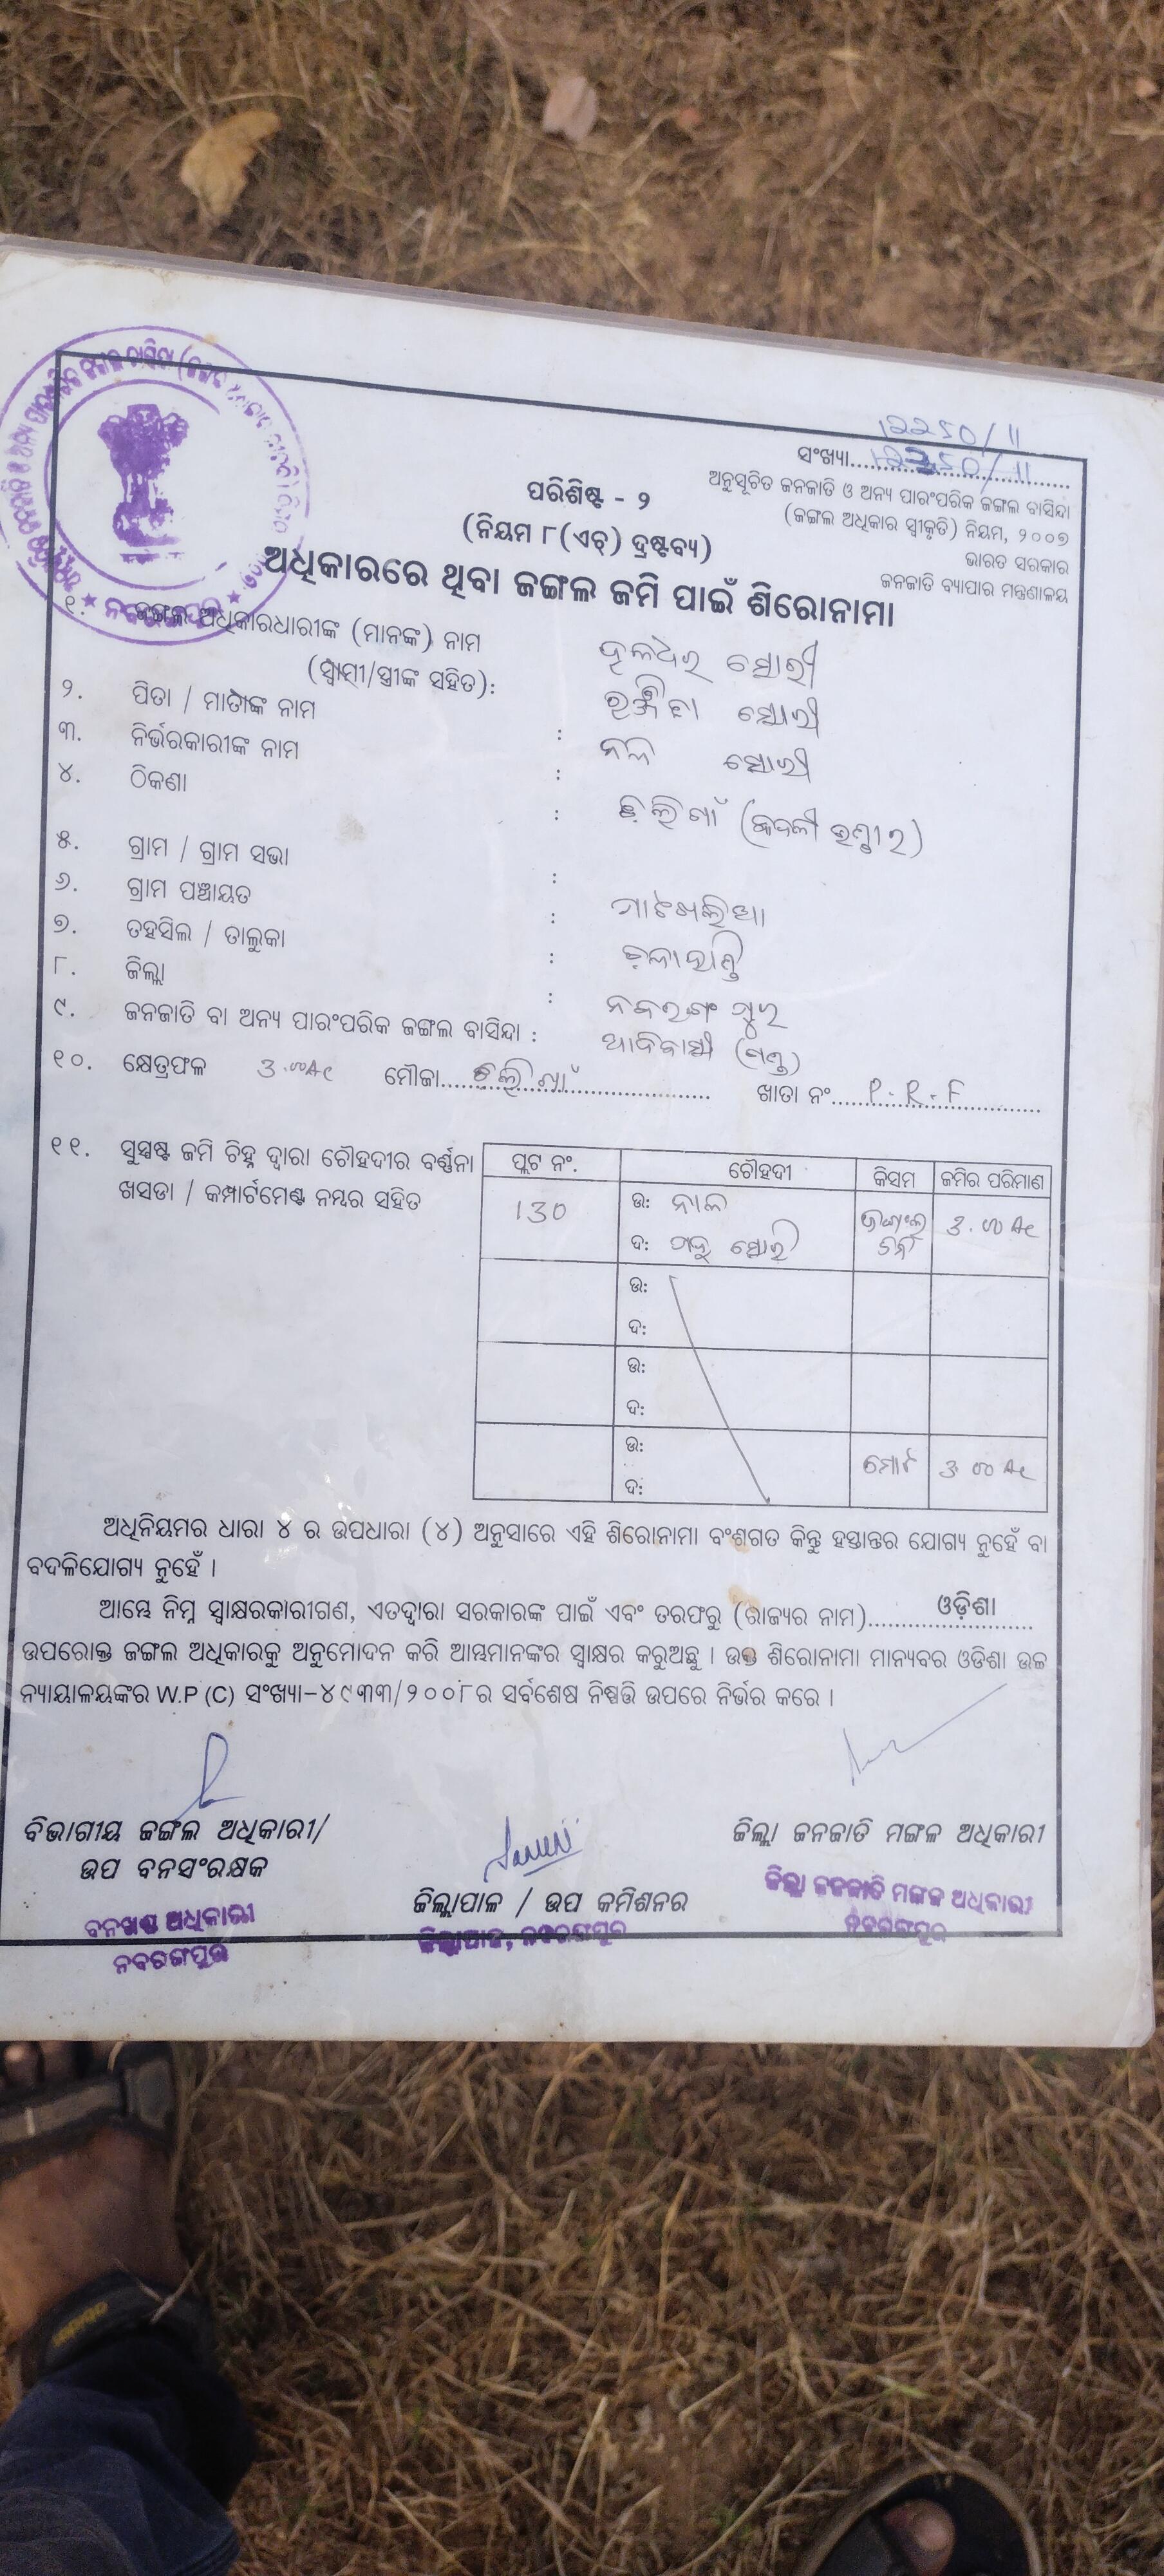 12250/11
ସଂଖ୍ୟା..... 12250/11
ଅନୁସୂଚିତ ଜନଜାତି ଓ ଅନ୍ୟ ପାରଂପରିକ ଜଙ୍ଗଲ ବାସିନ୍ଦା
(ଜଙ୍ଗଲ ଅଧିକାର ସ୍ୱୀକୃତି) ନିୟମ, ୨୦୦୭
ଭାରତ ସରକାର
ଜନଜାତି ବ୍ୟାପାର ମନ୍ତ୍ରଣାଳୟ
ପରିଶିଷ୍ଟ - ୨
(ନିୟମ ୮(ଏଚ୍) ଦ୍ରଷ୍ଟବ୍ୟ)
ଅଧିକାରରେ ଥିବା ଜଙ୍ଗଲ ଜମି ପାଇଁ ଶିରୋନାମା
୧. ଜଙ୍ଗଲ ଅଧିକାରଧାରୀଙ୍କ (ମାନଙ୍କ) ନାମ
(ସ୍ୱାମୀ/ସ୍ତ୍ରୀଙ୍କ ସହିତ):
୨. ପିତା / ମାତାଙ୍କ ନାମ :
୩. ନିର୍ଭରକାରୀଙ୍କ ନାମ :
୪. ଠିକଣା :
୫. ଗ୍ରାମ / ଗ୍ରାମ ସଭା :
୬. ଗ୍ରାମ ପଞ୍ଚାୟତ :
୭. ତହସିଲ / ତାଲୁକା :
୮. ଜିଲ୍ଲା : ନବରଙ୍ଗପୁର
୯. ଜନଜାତି ବା ଅନ୍ୟ ପାରଂପରିକ ଜଙ୍ଗଲ ବାସିନ୍ଦା : ଆଦିବାସୀ
୧୦. କ୍ଷେତ୍ରଫଳ 3.00Ac ମୌଜା..... ଖାତା ନଂ..... P.R.F
୧୧. ସୁସ୍ପଷ୍ଟ ଜମି ଚିହ୍ନ ଦ୍ୱାରା ଚୌହଦୀର ବର୍ଣ୍ଣନା
ଖସଡା / କମ୍ପାର୍ଟମେଣ୍ଟ ନମ୍ବର ସହିତ
ପ୍ଲଟ ନଂ. ଚୌହଦୀ କିସମ ଜମିର ପରିମାଣ
130 ଉ: ନାଳ 3.00 Ac
ଦ:
ଉ:
ଦ:
ଉ:
ଦ:
ଉ: ମୋଟ 3.00 Ac
ଦ:
ଅଧିନିୟମର ଧାରା ୪ ର ଉପଧାରା (୪) ଅନୁସାରେ ଏହି ଶିରୋନାମା ବଂଶଗତ କିନ୍ତୁ ହସ୍ତାନ୍ତର ଯୋଗ୍ୟ ନୁହେଁ ବା
ବଦଳିଯୋଗ୍ୟ ନୁହେଁ ।
ଆମ୍ଭେ ନିମ୍ନ ସ୍ୱାକ୍ଷରକାରୀଗଣ, ଏତଦ୍ଦ୍ୱାରା ସରକାରଙ୍କ ପାଇଁ ଏବଂ ତରଫରୁ (ରାଜ୍ୟର ନାମ)..... ଓଡ଼ିଶା
ଉପରୋକ୍ତ ଜଙ୍ଗଲ ଅଧିକାରକୁ ଅନୁମୋଦନ କରି ଆମ୍ଭମାନଙ୍କର ସ୍ୱାକ୍ଷର କରୁଅଛୁ । ଉକ୍ତ ଶିରୋନାମା ମାନ୍ୟବର ଓଡିଶା ଉଚ୍ଚ
ନ୍ୟାୟାଳୟଙ୍କର W.P (C) ସଂଖ୍ୟା-୪୯୩୩/୨୦୦୮ର ସର୍ବଶେଷ ନିଷ୍ପତ୍ତି ଉପରେ ନିର୍ଭର କରେ ।
ବିଭାଗୀୟ ଜଙ୍ଗଲ ଅଧିକାରୀ/
ଉପ ବନସଂରକ୍ଷକ
ବନଖଣ୍ଡ ଅଧିକାରୀ
ନବରଙ୍ଗପୁର
ଜିଲ୍ଲାପାଳ / ଉପ କମିଶନର
ଜିଲ୍ଲାପାଳ, ନବରଙ୍ଗପୁର
ଜିଲ୍ଲା ଜନଜାତି ମଙ୍ଗଳ ଅଧିକାରୀ
ଜିଲ୍ଲା ଜନଜାତି ମଙ୍ଗଳ ଅଧିକାରୀ
ନବରଙ୍ଗପୁର